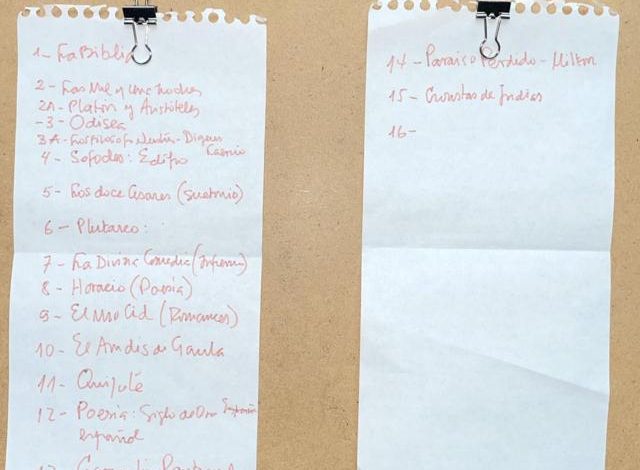 1- La Biblia
2- Las Mil y una noches
2A- Platón y Aristóteles
-3- Odisea
3A- Los filósofos
4- Sofocles: Edipo
5- Los doce Césares (Suetonio)
6- Plutarco:
7- La Divina Comedia (Infierno)
8- Horacio (Poesía)
9- El Mio Cid (Romances)
10- El Amadis de Gaula
11- Quijote
12- Poesía: Siglo de Oro
español
13
14- Paraiso Perdido - Milton
15- Cronistas de Indias
16-